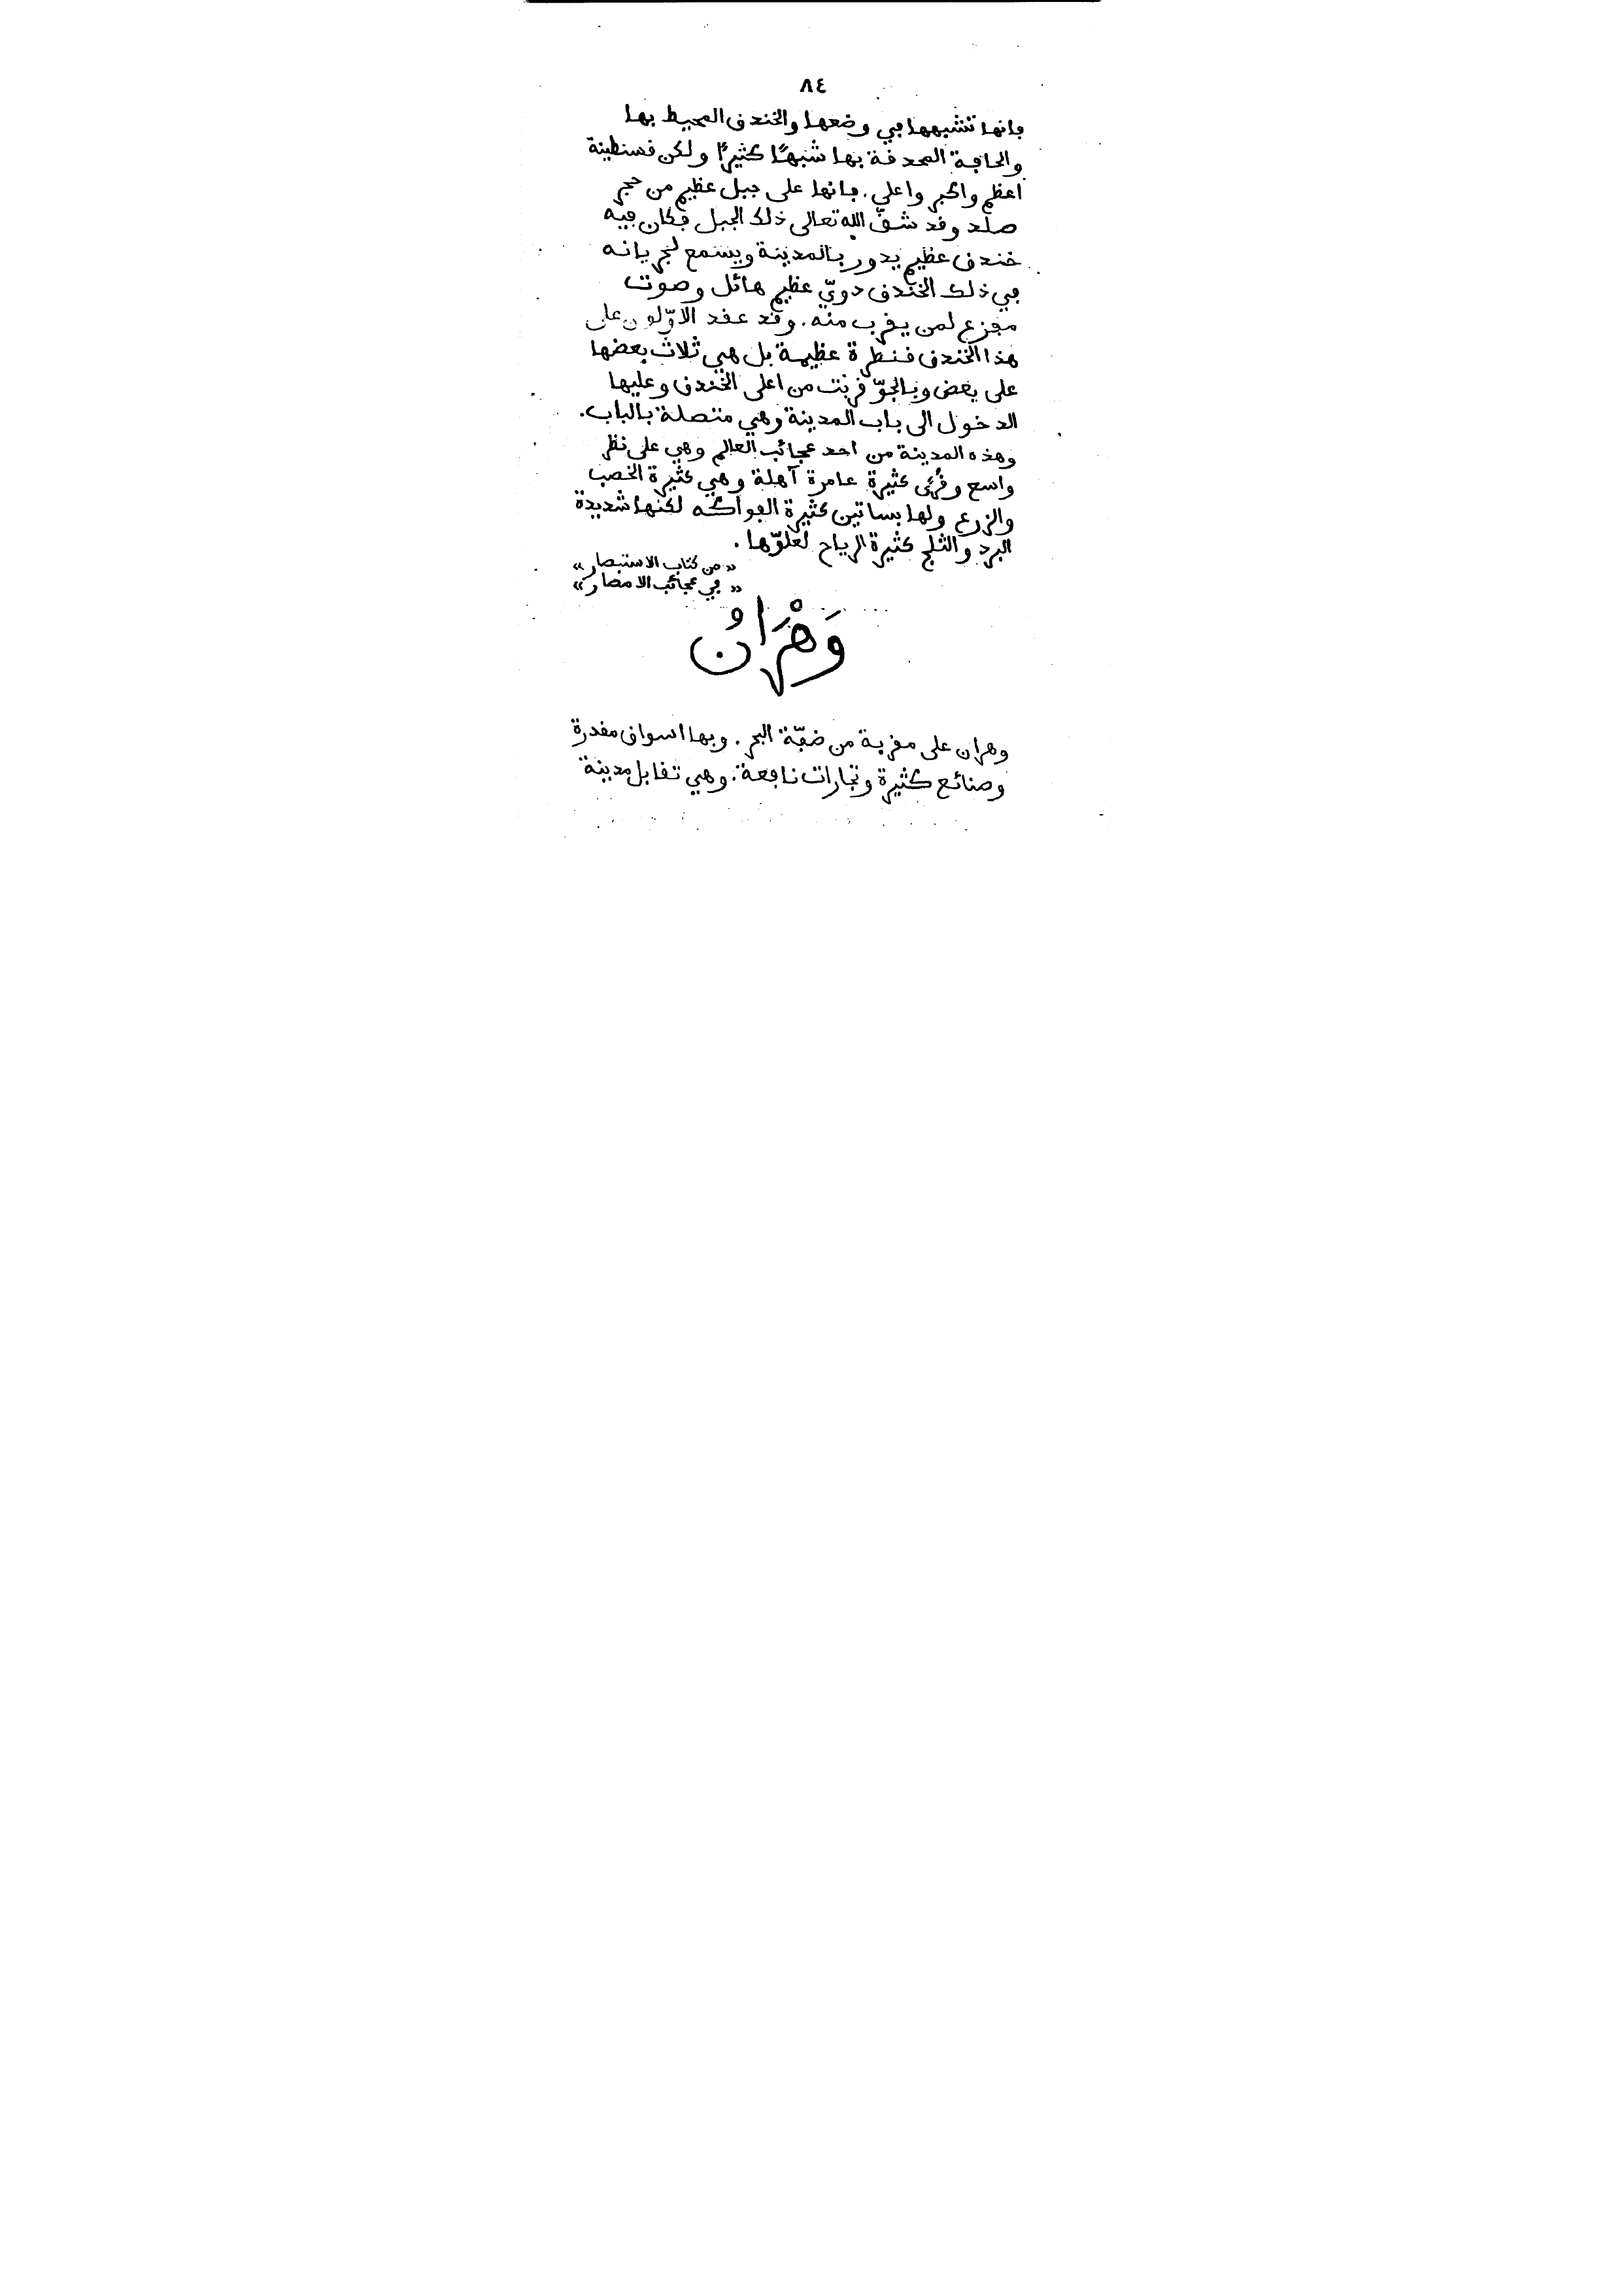 ٨٤
فانها تشبهها في وضعها والخندق المحيط بها
والحافة المحدقة بها شبهًا كثيرًا ولكن قسنطينة
اعظم واكبر واعلى. فانها على جبل عظيم من حجر
صلد وقد شقّ الله تعالى ذلك الجبل فكان فيه
خندق عظيم يدور بالمدينة ويسمع لجريانه
في ذلك الخندق دويّ عظيم هائل وصوت
مفزع لمن يقرب منه. وقد عقد الاوّلون على
هذا الخندق قنطرة عظيمة بل هي ثلاث بعضها
على بعض وبالجوّ قربت من اعلى الخندق وعليها
الدخول الى باب المدينة وهي متصلة بالباب.
وهذه المدينة من احد عجائب العالم وهي على نظر
واسع وقُرًى كثيرة عامرة آهلة وهي كثيرة الخصب
والزرع ولها بساتين كثيرة الفواكه لكنها شديدة
البرد والثلج كثيرة الرياح لعلوّها.
«من كتاب الاستبصار»
«في عجائب الامصار»
وَهْرَانُ
وهران على مقربة من ضفّة البحر. وبها اسواق مقدرة
وصنائع كثيرة وتجارات نافعة. وهي تقابل مدينة